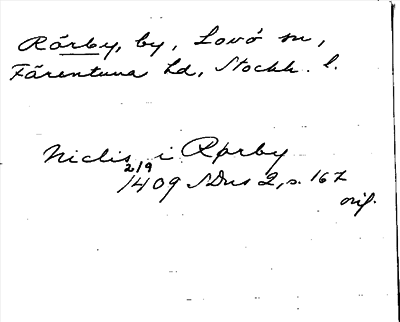 Rörby, by, Lovö sn,
Färentuna hd, Stockh. l.
Niclis i Rørby
2/9
1409 SDns 2, s. 167
orig.